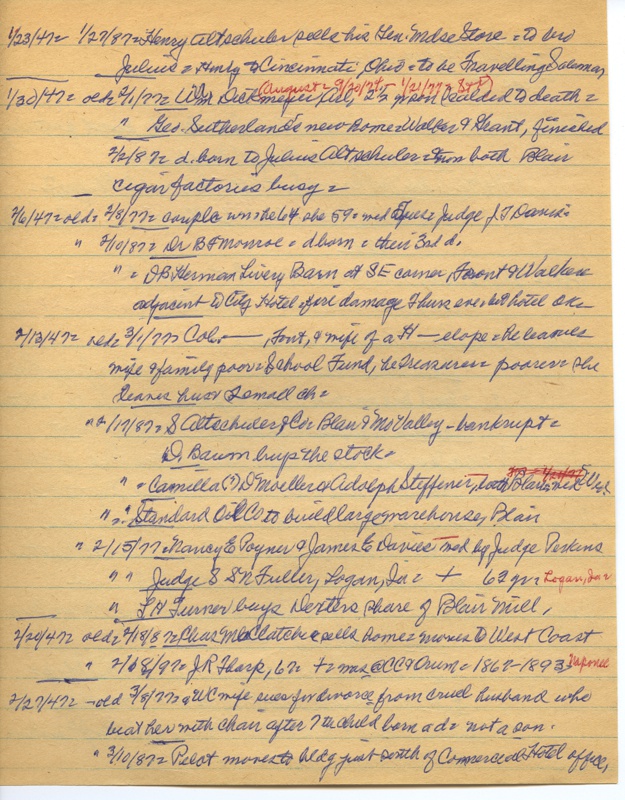 1/23/47= 1/27/87= Henry Altschuler sells his Gen. Mdse Store = to bro
Julius = Hmly to Cincinnati, Ohio = to be Travelling Salesman
(August = 9/20/74 1/21/77 = 8+5)
1/30/47= old= 2/1/77= Wm Dickmeyer Jul, 2½ scalded to death=
" Geo. Sutherland's new home = Walker & Grant, finished
2/2/87= d. born to Julius Altschuler = Both Blair
Cigar factories busy =
2/6/47= old= 2/8/77= couple who he 64 she 59 = med Judge J.T. Davis=
" 2/10/87= Dr B F Monroe = d born = their 3rd d.
" = D B Herman Livery Barn at SE corner, Front & Walker
adjacent to City Hotel, fire damage Thurs eve, but hotel ok=
2/13/47= old= 3/1/77= Col. —, Font, & wife of a H— elope = He leaves
wife & family poor = School Fund, he treasurer = poorer = she
leaves husb & small ch=
" 2/17/87= S Altschuler & Co= Blair & Mo Valley - bankrupt=
D. Baum buys the stock=
" = Camilla (?) D Moeller & Adolph Steffener, both Blair med
" = Standard Oil Co to build large warehouse, Blair
" 2/15/77= Nancy E Poyner & James E Davies med by Judge Perkins
" " Judge S S N Fuller, Logan, Ia = + 62 yr= Logan, Ia=
" L H Turner buys Dexters share of Blair Mill,
2/20/47= old= 2/18/87= Chas McClatchie sells home = moves to West Coast
" 2/08/97= J R Tharp, 62 = + = & Orum = 1867-1893
2/27/47= old 3/8/77= a WC wife sues for divorce from cruel husband who
beat her with chair after 7th child born a d = not a son.
" 3/10/87= Pilot moves to bldg just south of Commercial Hotel office,